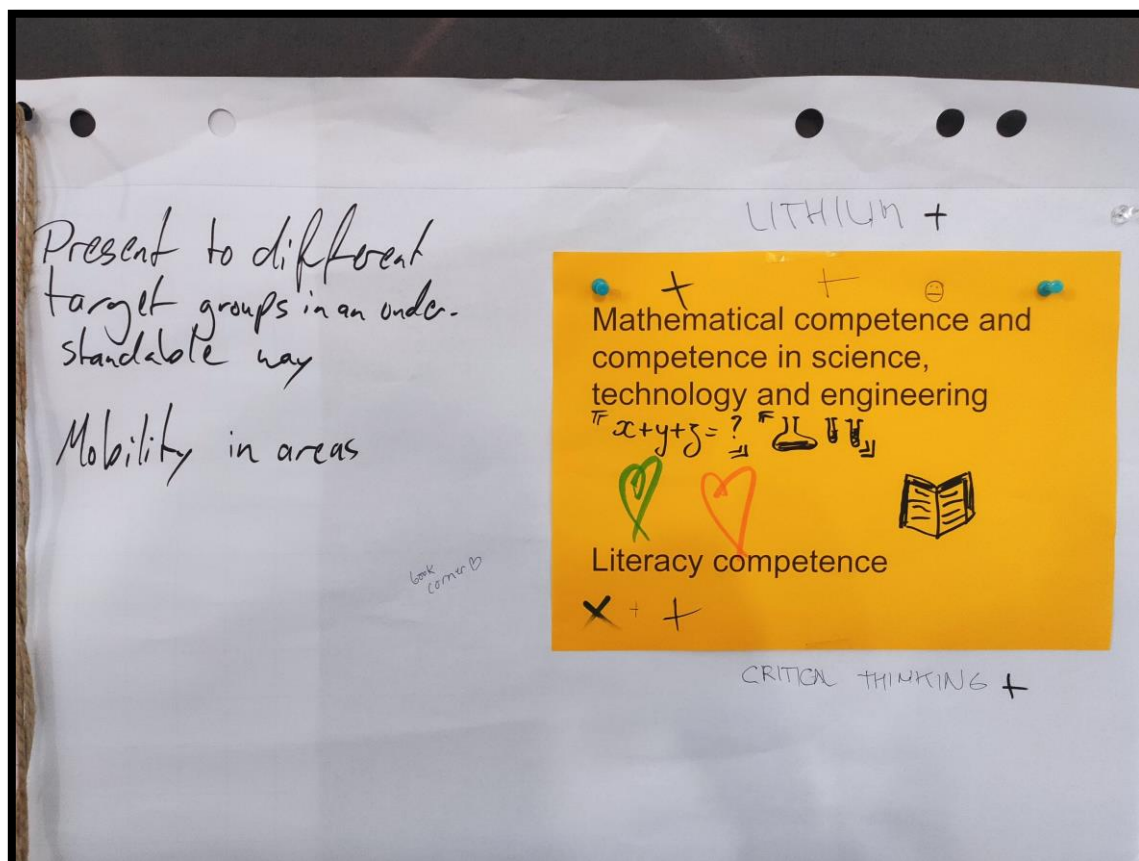 Present to different
target groups in an under-
standable way
Mobility in areas
book
corner♡
LITHIUM +
+ +
Mathematical competence and
competence in science,
technology and engineering
x+y+z=?
Literacy competence
x + +
CRITICAL THINKING +